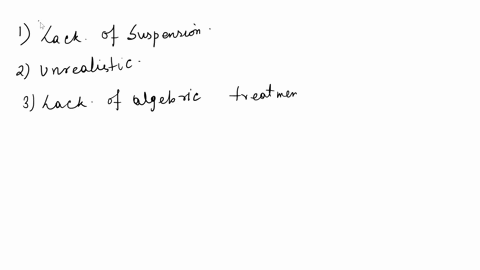 1) Lack. of Suspension.
2) unrealistic.
3) Lack. of algebric treatmen